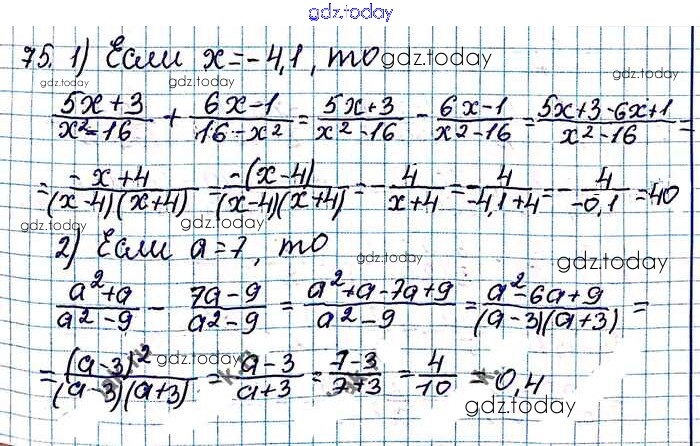 gdz.today
75. 1) Если x=-4,1, то gdz.today
gdz.today gdz.today gdz.today
(5x+3)/(x²-16) + (6x-1)/(16-x²) = (5x+3)/(x²-16) - (6x-1)/(x²-16) = (5x+3-6x+1)/(x²-16) =
= (-x+4)/((x-4)(x+4)) = (-(x-4))/((x-4)(x+4)) = - 4/(x+4) = - 4/(-4,1+4) = - 4/(-0,1) = 40
gdz.today gdz.today
2) Если a=7, то
gdz.today gdz.today
(a²+a)/(a²-9) - (7a-9)/(a²-9) = (a²+a-7a+9)/(a²-9) = (a²-6a+9)/((a-3)(a+3)) =
= (a-3)²/((a-3)(a+3)) = (a-3)/(a+3) = (7-3)/(7+3) = 4/10 = 0,4
gdz.today gdz.today